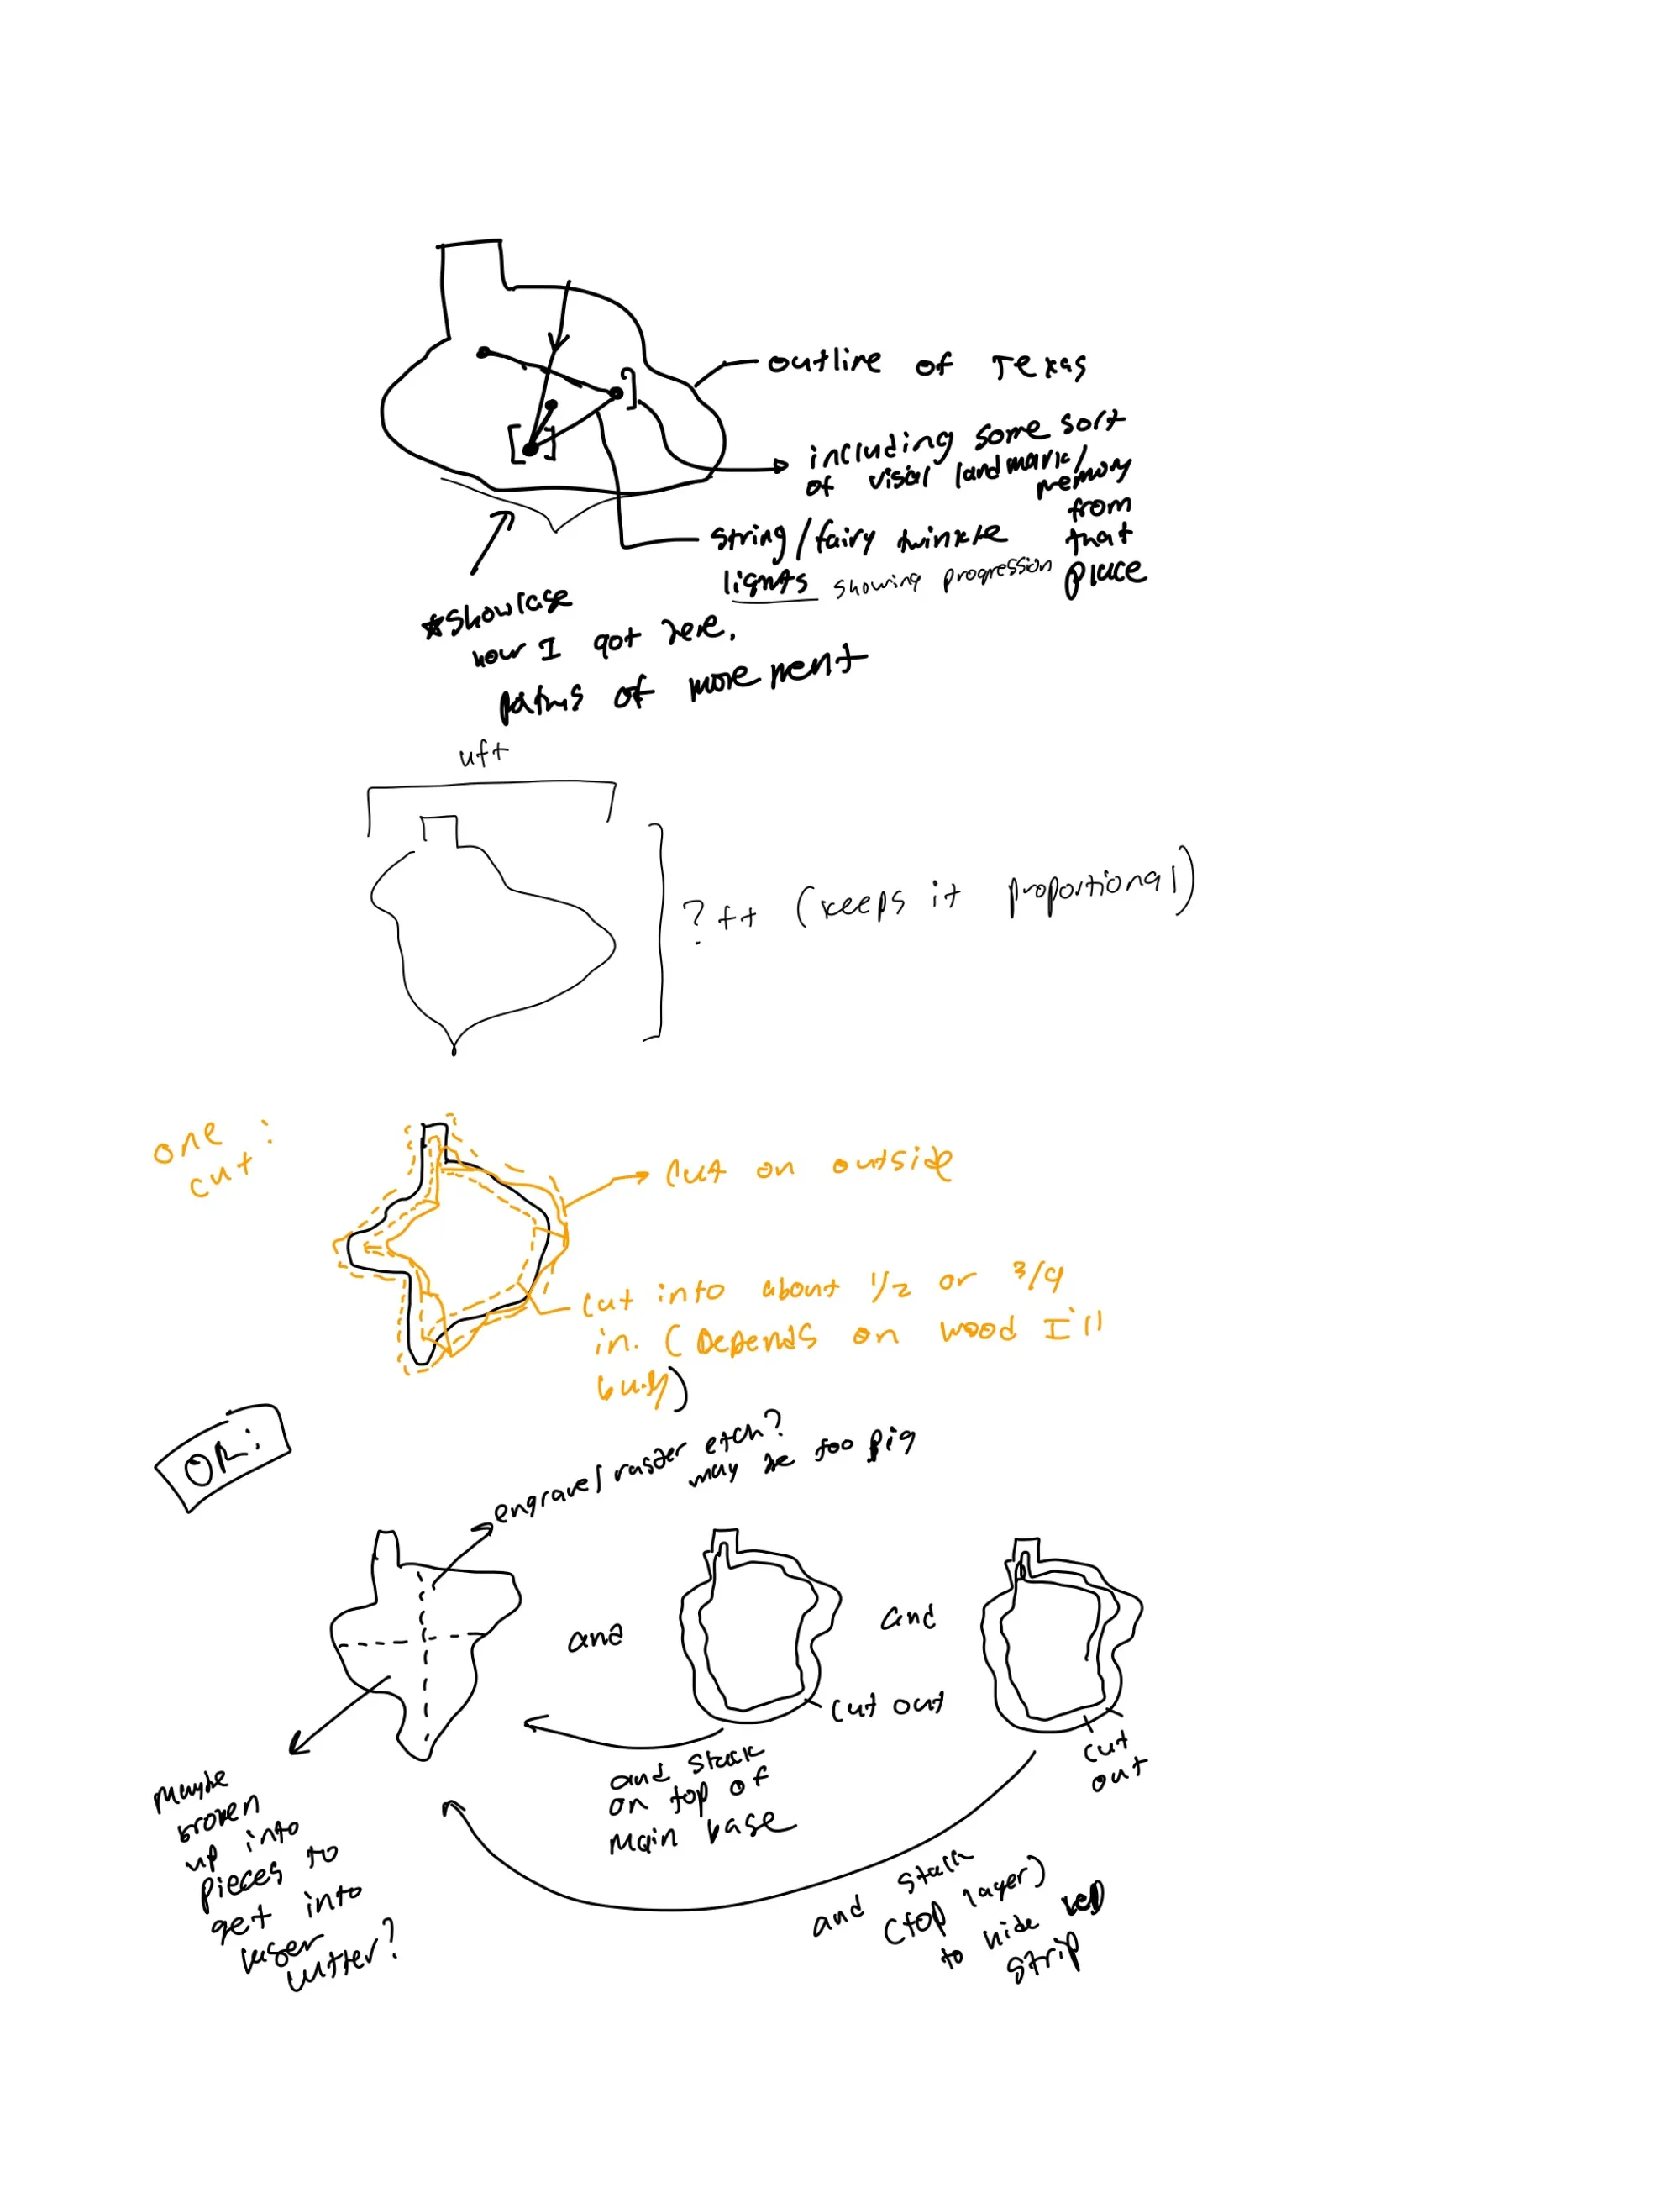 outline of Texas
including some sort
of visual landmark/
memory
from
that
place
string/fairy twinkle
lights showing progression
*showcase
how I got here.
paths of movement
4ft
? ft (keeps it proportional)
one
cut:
cut on outside
cut into about 1/2 or 3/4
in. (Depends on wood I'll
buy)
OR:
engrave/raster etch?
may be too big
and
and
cut out
cut
out
and stack
on top of
main base
maybe
broken
up into
pieces to
get into
laser
cutter?
and stack
(top layer)
to hide LED
strip